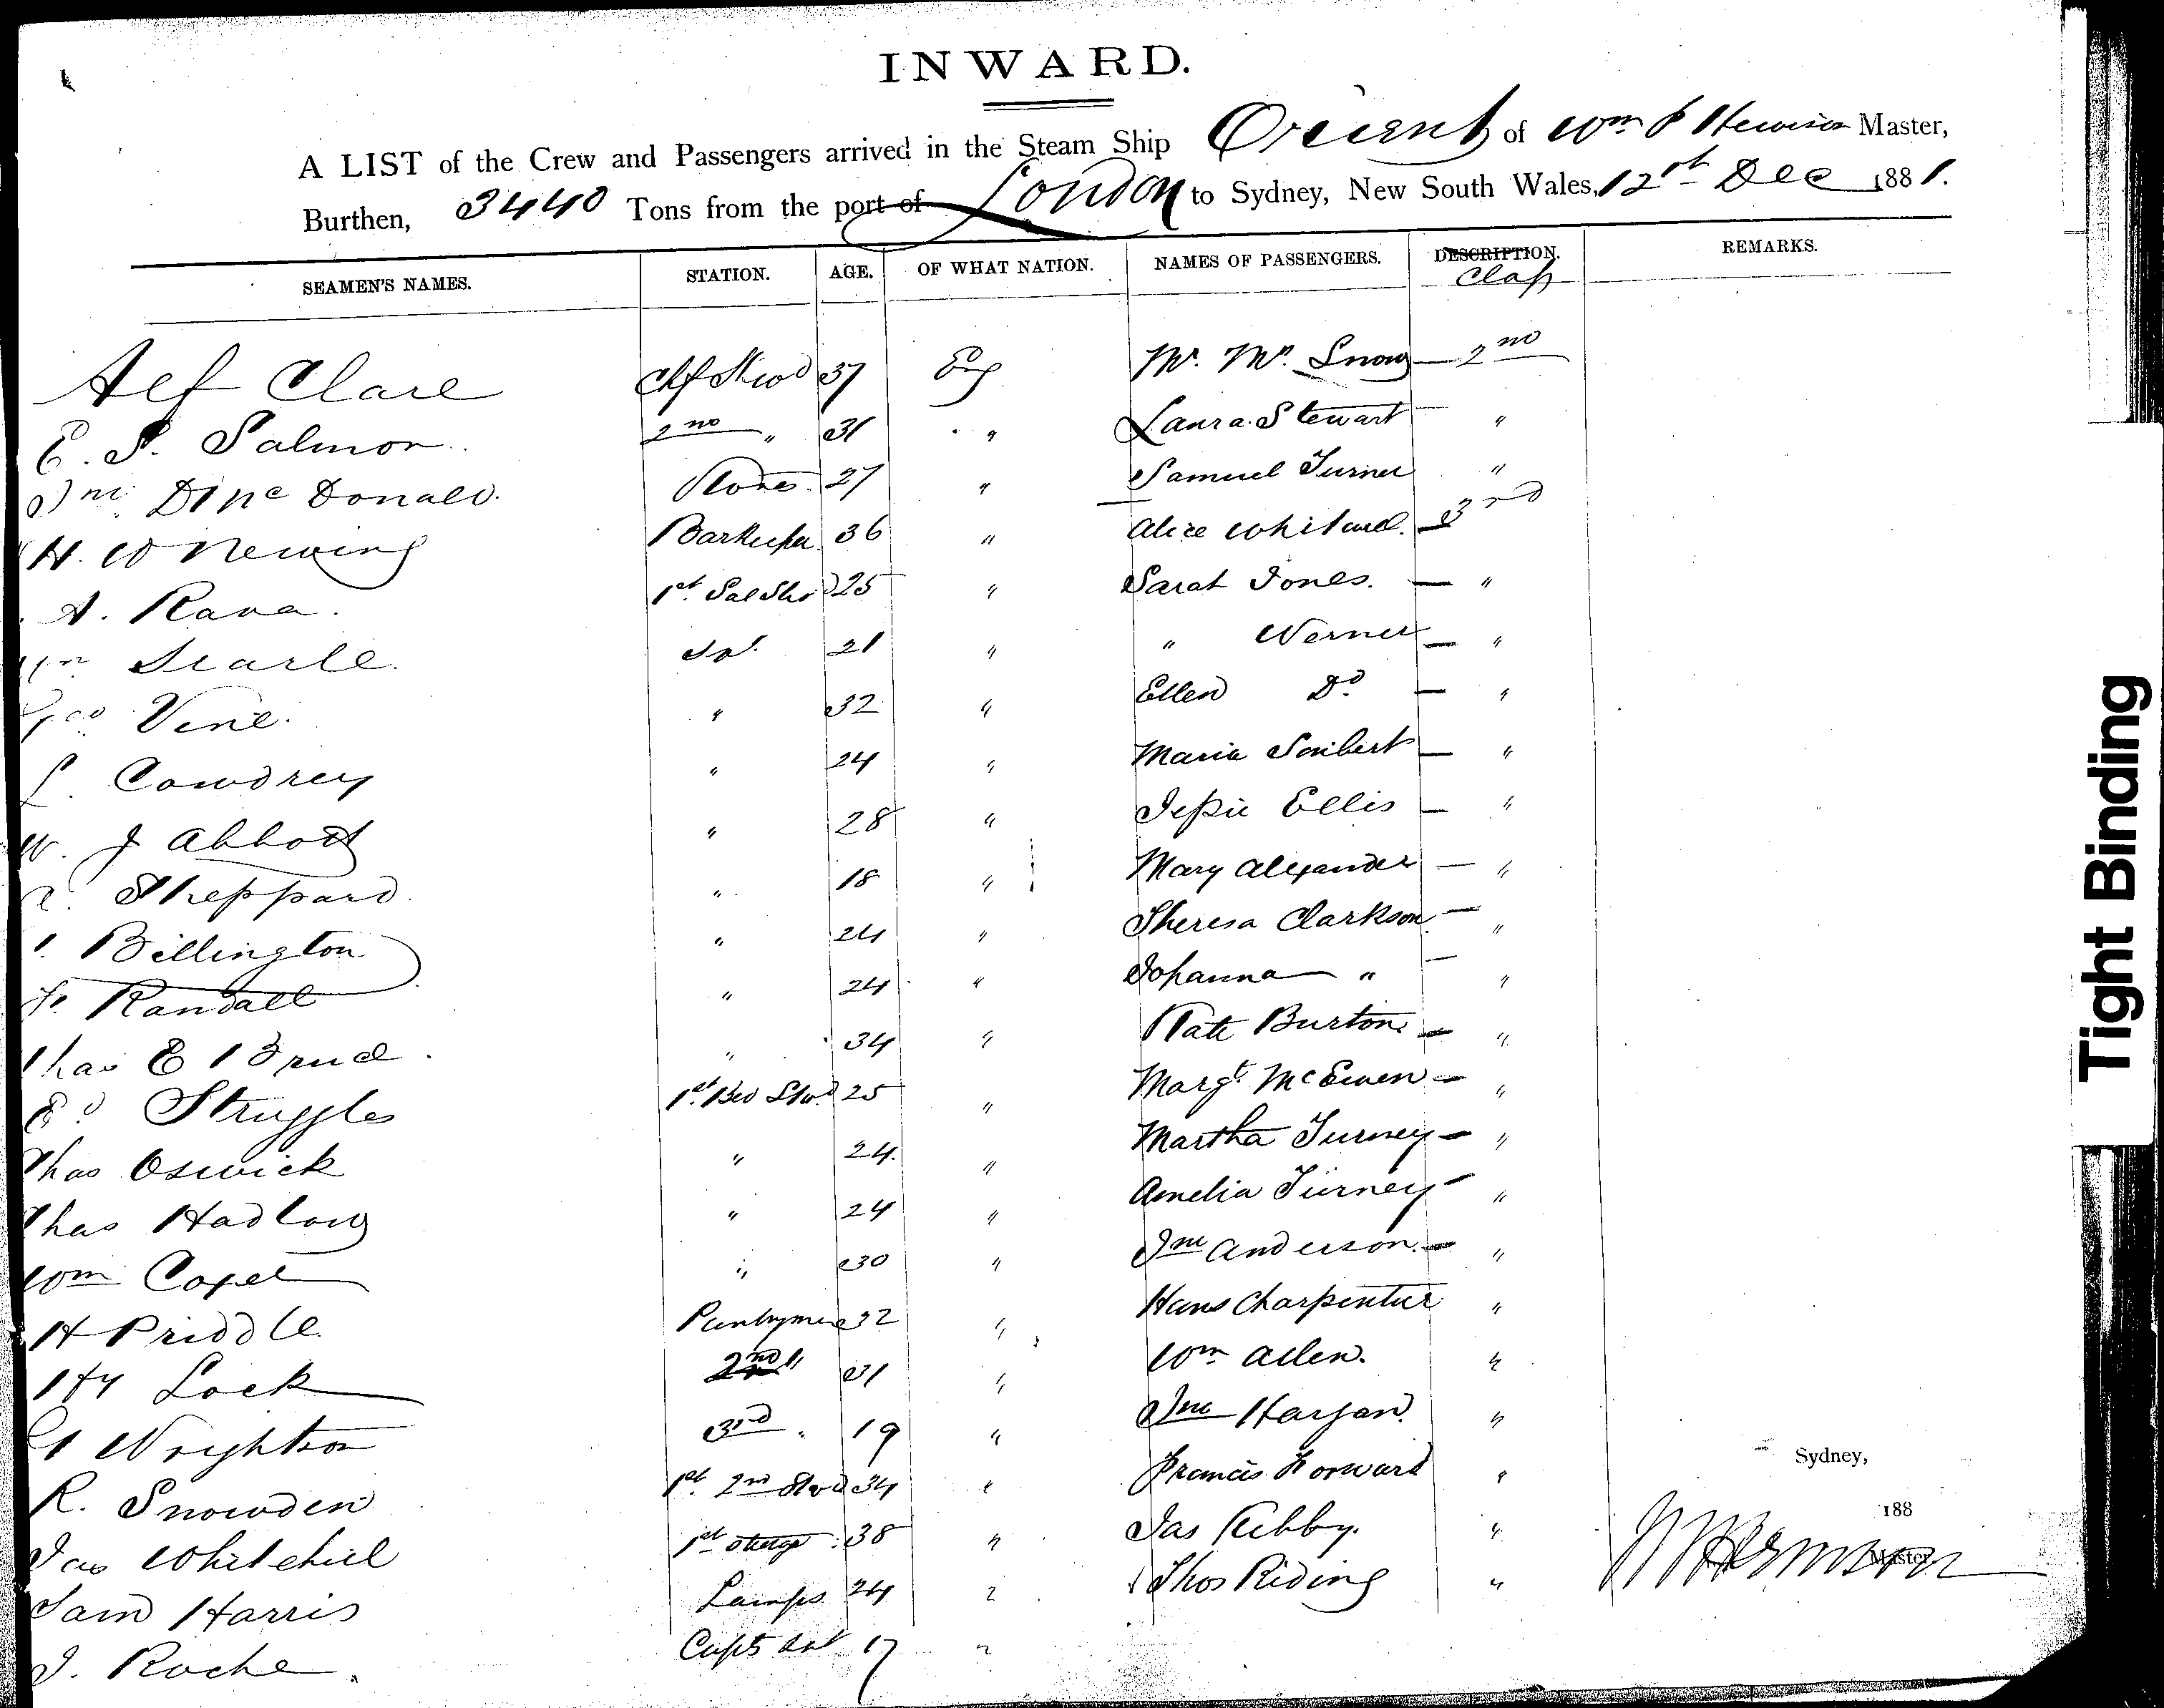 INWARD.
A LIST of the Crew and Passengers arrived in the Steam Ship Orient of Wm P Hewison Master,
Burthen, 3440 Tons from the port of London to Sydney, New South Wales, 12th Dec 1881.
SEAMEN'S NAMES. STATION. AGE. OF WHAT NATION. NAMES OF PASSENGERS. DESCRIPTION. REMARKS.
Class
Alf Clare Chf Stwd 37 Eng Mr. Mrs. Snow — 2nd
E. S. Salmon 2nd " 31 " Laura Stewart — "
Jno. D McDonald. Stores. 27 " Samuel Turner "
H. W Newing Barkeeper 36 " Alice Whitwell. 3rd
A. Rava. 1st Sal Stwd 25 " Sarah Jones. — "
Wm Searle. Do. 21 " " Werner — "
Geo Vine. " 32 " Ellen Do — "
L. Cowdrey " 24 " Maria Seibert — "
W. J Abbott " 28 " Jessie Ellis — "
Sheppard. " 18 " Mary Alexander — "
Billington " 24 " Theresa Clarkson — "
Randall " 24 " Johanna " — "
Chas E Brud " 34 " Kate Burton. — "
Ed Struggles 1st Bed Stwd 25 " Margt. McEwen — "
Chas Oswick " 24. " Martha Turney — "
Chas Hadlow " 24 " Amelia Turney — "
Wm Capel " 30 " Jno Anderson. — "
H Priddle. Pantryman 32 " Hans Charpentier "
Hy Lock 2nd " 31 " Wm Allen. "
Wrighton 3rd " 19 " Jno Hargan. "
R. Snowden 1st 2nd Stwd 34 " Francis Forward "
Jas Whitehill 1st Steerge 38 " Jas Kibby. "
Sam Harris Lamps 24 " Thos Riding "
J. Roche. Capts 17 "
Sydney,
188
Master
Tight Binding